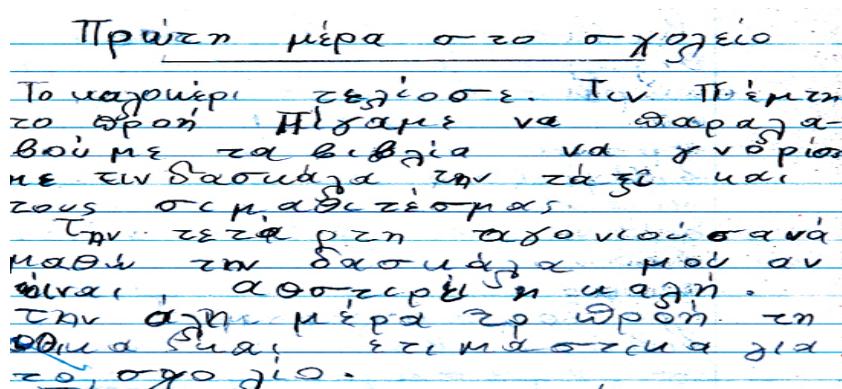 Πρώτη μέρα στο σχολείο
Το καλοκέρι τελίοσε. Τιν Πέμτη
το προή πίγαμε να παραλα-
βούμε τα βιβλία να γνορίσο
με τιν δασκάλα την τάξι και
τους σιμαθιτέσμας.
Την τετάρτη αγονιούσα νά
μαθώ την δασκάλα μού αν
είναι αφστιρή η καλή.
την άλη μέρα το προή
ετιμαστικα για
το σχολίο.